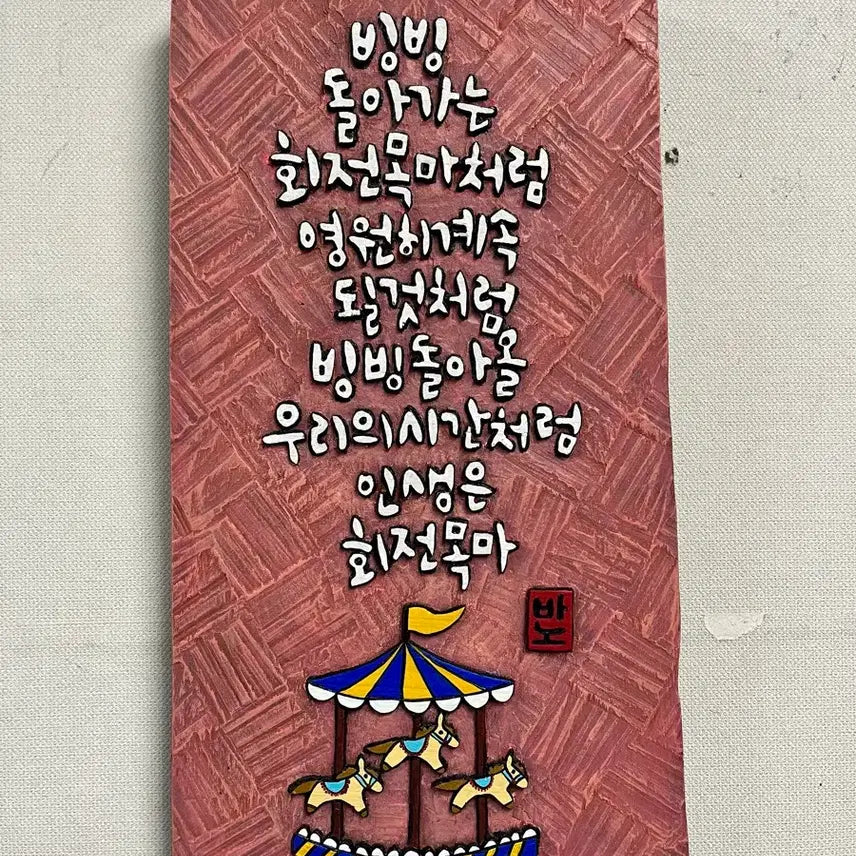 빙빙
돌아가는
회전목마처럼
영원히계속
될것처럼
빙빙돌아올
우리의시간처럼
인생은
회전목마
바
노